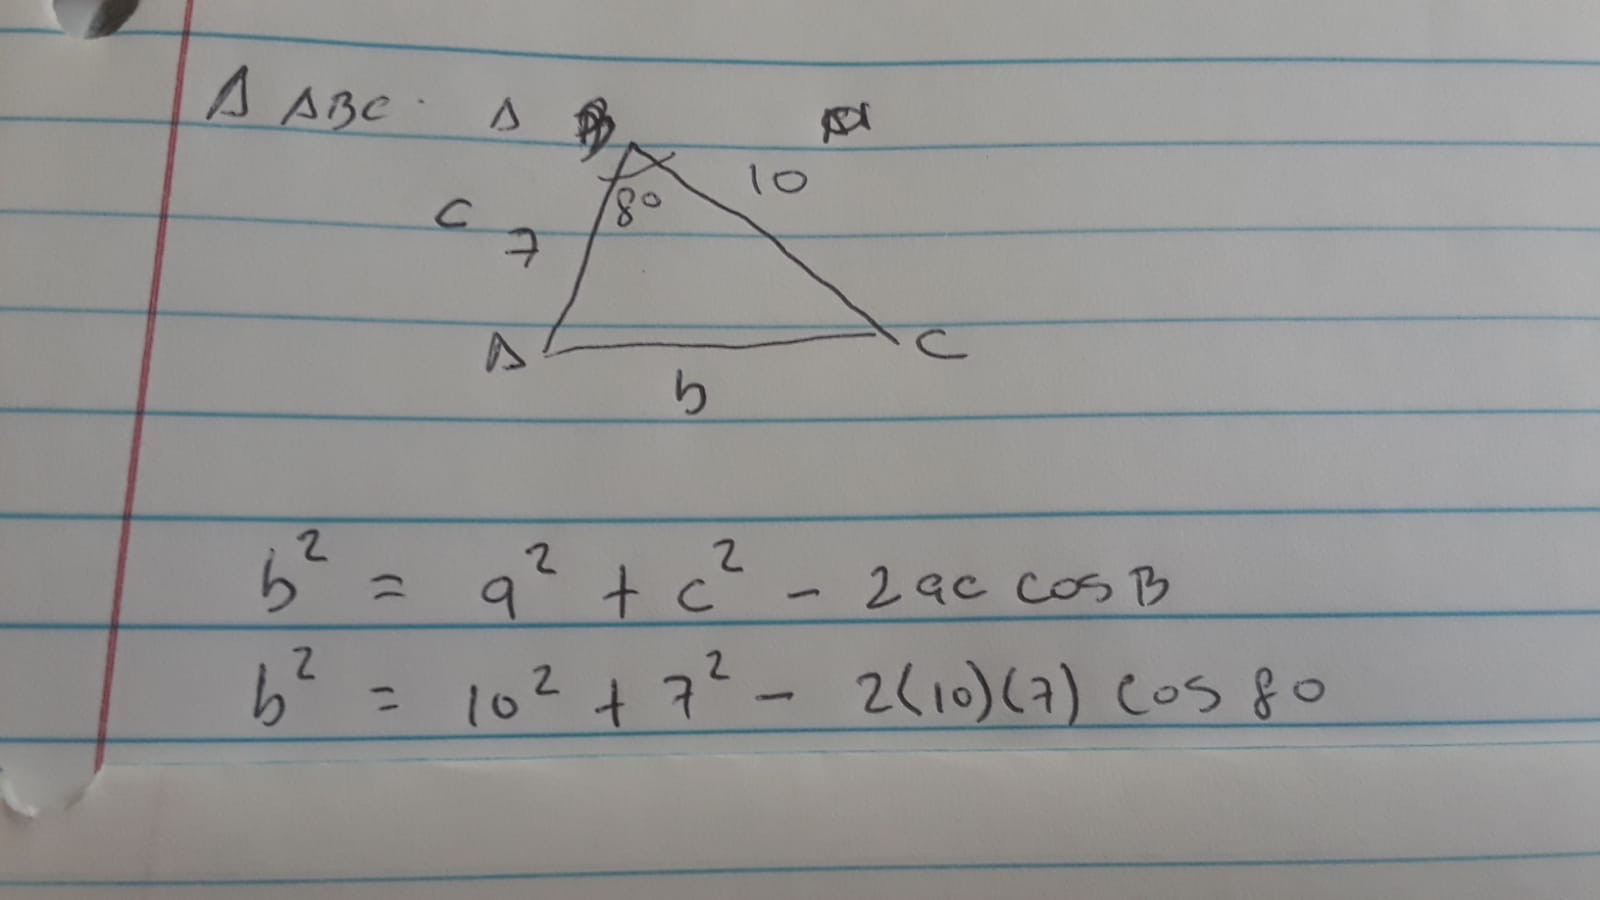 Δ ABC.
B
10
80
c
7
A
C
b
b² = a² + c² - 2ac cos B
b² = 10² + 7² - 2(10)(7) cos 80